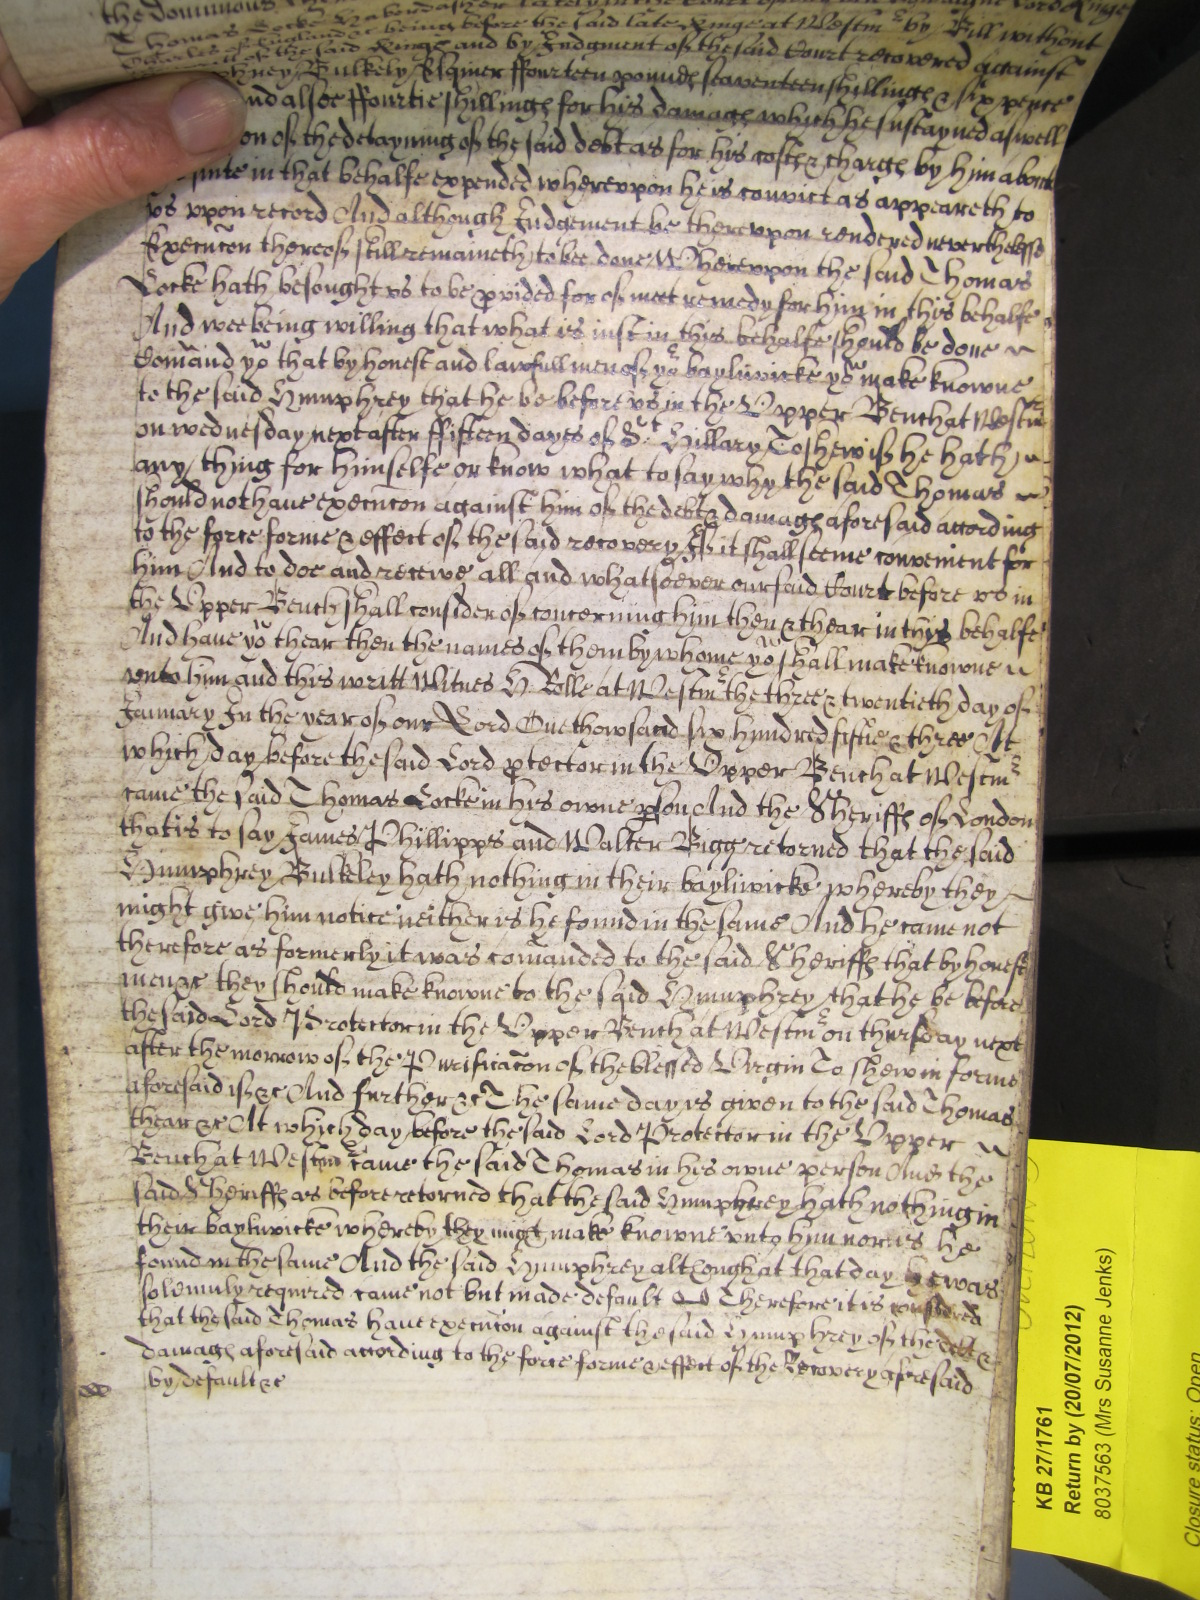 the dominions
Thomas Locke Haberdasher lately in the Court
Charles of England &c being before the said late Kinge at Westm by Bill without
of the said Kinge and by Judgment of the said Court recovered against
phrey Bulkely Esquier ffourteen pounds seaventeen shillings & six pence
and alsoe ffourtie shillings for his damages which he sustayned aswell
on of the detayning of the said debt as for his costs & charges by him about
suite in that behalfe expended whereupon he is convict as appeareth to
vs vpon record And although Judgement be therevpon rendered neverthelesse
Execucon thereof still remaineth to bee done Wherevpon the said Thomas
Locke hath besought vs to be pvided for of meet remedy for him in this behalfe
And wee being willing that what is iust in this behalfe should be done
Comand yo that by honest and lawfull men of yor bayliwicke yo make knowne
to the said Humphrey that he be before vs in the Vpper Bench at Westmr
on wednesday next after ffifteen dayes of St Hillary To shew if he hath
any thing for himselfe or know what to say why the said Thomas
should not haue execucon against him of the debt & damages aforesaid according
to the force forme & effect of the said recovery If it shall seeme convenient for
him And to doe and receive all and whatsoever our said Court before vs in
the Vpper Bench shall consider of concerning him then & thear in this behalfe
And haue yo thear then the names of them by whome yo shall make knowne
vnto him and this writt Witnes H Rolle at Westmr the three & twentieth day of
January In the year of our Lord One thowsand six hundred fiftie & three At
which day before the said Lord ptector in the Vpper Bench at Westmr
came the said Thomas Locke in his owne pson And the Sheriffs of London
that is to say James Phillipps and Walter Bigg retorned that the said
Humphrey Bulkeley hath nothing in their bayliwicke whereby they
might give him notice neither is he found in the same And he came not
therefore as formerly it was comanded to the said Sheriffs that by honest
men &c they should make knowne to the said Humphrey that he be before
the said Lord Protector in the Vpper Bench at Westmr on thursday next
after the morrow of the Purificacon of the blessed Virgin To shew in forme
aforesaid if &c And further &c The same day is given to the said Thomas
thear &c At which day before the said Lord Protector in the Vpper
Bench at Westmr came the said Thomas in his owne person And the
said Sheriffs as before retorned that the said Humphrey hath nothing in
their bayliwicke whereby they might make knowne vnto him nor is he
found in the same And the said Humphrey although at that day he was
solemnly required came not but made default Therefore it is considered
that the said Thomas haue execucon against the said Humphrey of the debt &
damages aforesaid according to the force forme & effect of the Recovery aforesaid
by default &c
KB 27/1761
Return by (20/07/2012)
8037563 (Mrs Susanne Jenks)
Closure status: Open